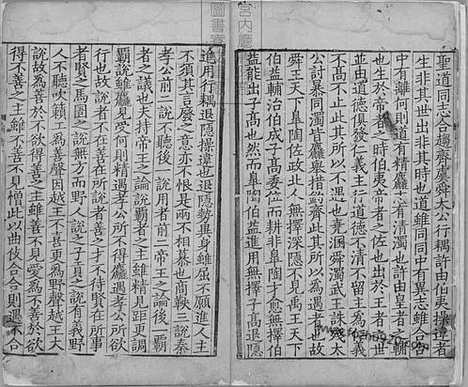 聖道同志合趨齊虞舜太公行耦許由伯夷操違者
生非其世出非其時也道雖同同中有異志雖合合
中有離何則道有精麤志有清濁也許由皇者之輔
也生於帝者之時伯夷帝者之佐也出於王者之世
並由道德俱發仁義主行道德不清不留主為仁義
不高不止此其所以不遇也堯溷舜濁武王誅殘太
公討暴同濁皆麤舉措鈞齊此其所以為遇者也故
舜王天下皐陶佐政北人無擇深隱不見禹王天下
伯益輔治伯成子高委位而耕非皐陶才愈無擇伯
益能出子高也然而皐陶伯益進用無擇子高退隱
進用行耦退隱操違也退隱勢異身雖屈不願進人主
不須其言廢之意亦不恨是兩不相慕也商鞅三說秦
孝公前二說不聽後一說用者前二帝王之論後一霸
者之議也夫持帝王之論說霸者之主雖精見距更調
霸說雖麤見受何則精遇孝公所不得麤遇孝公所欲
行也故說者不在善在所說者善之才不待賢在所事
者賢之馬圄之說無方而野人說之子貢之說有義野
人不聽吹籟工為善聲因越王不喜更為野聲越王大
說故為善於不欲得善之主雖善不見愛為不善於欲
得不善之主雖不善不見憎此以曲伎合合則遇不合